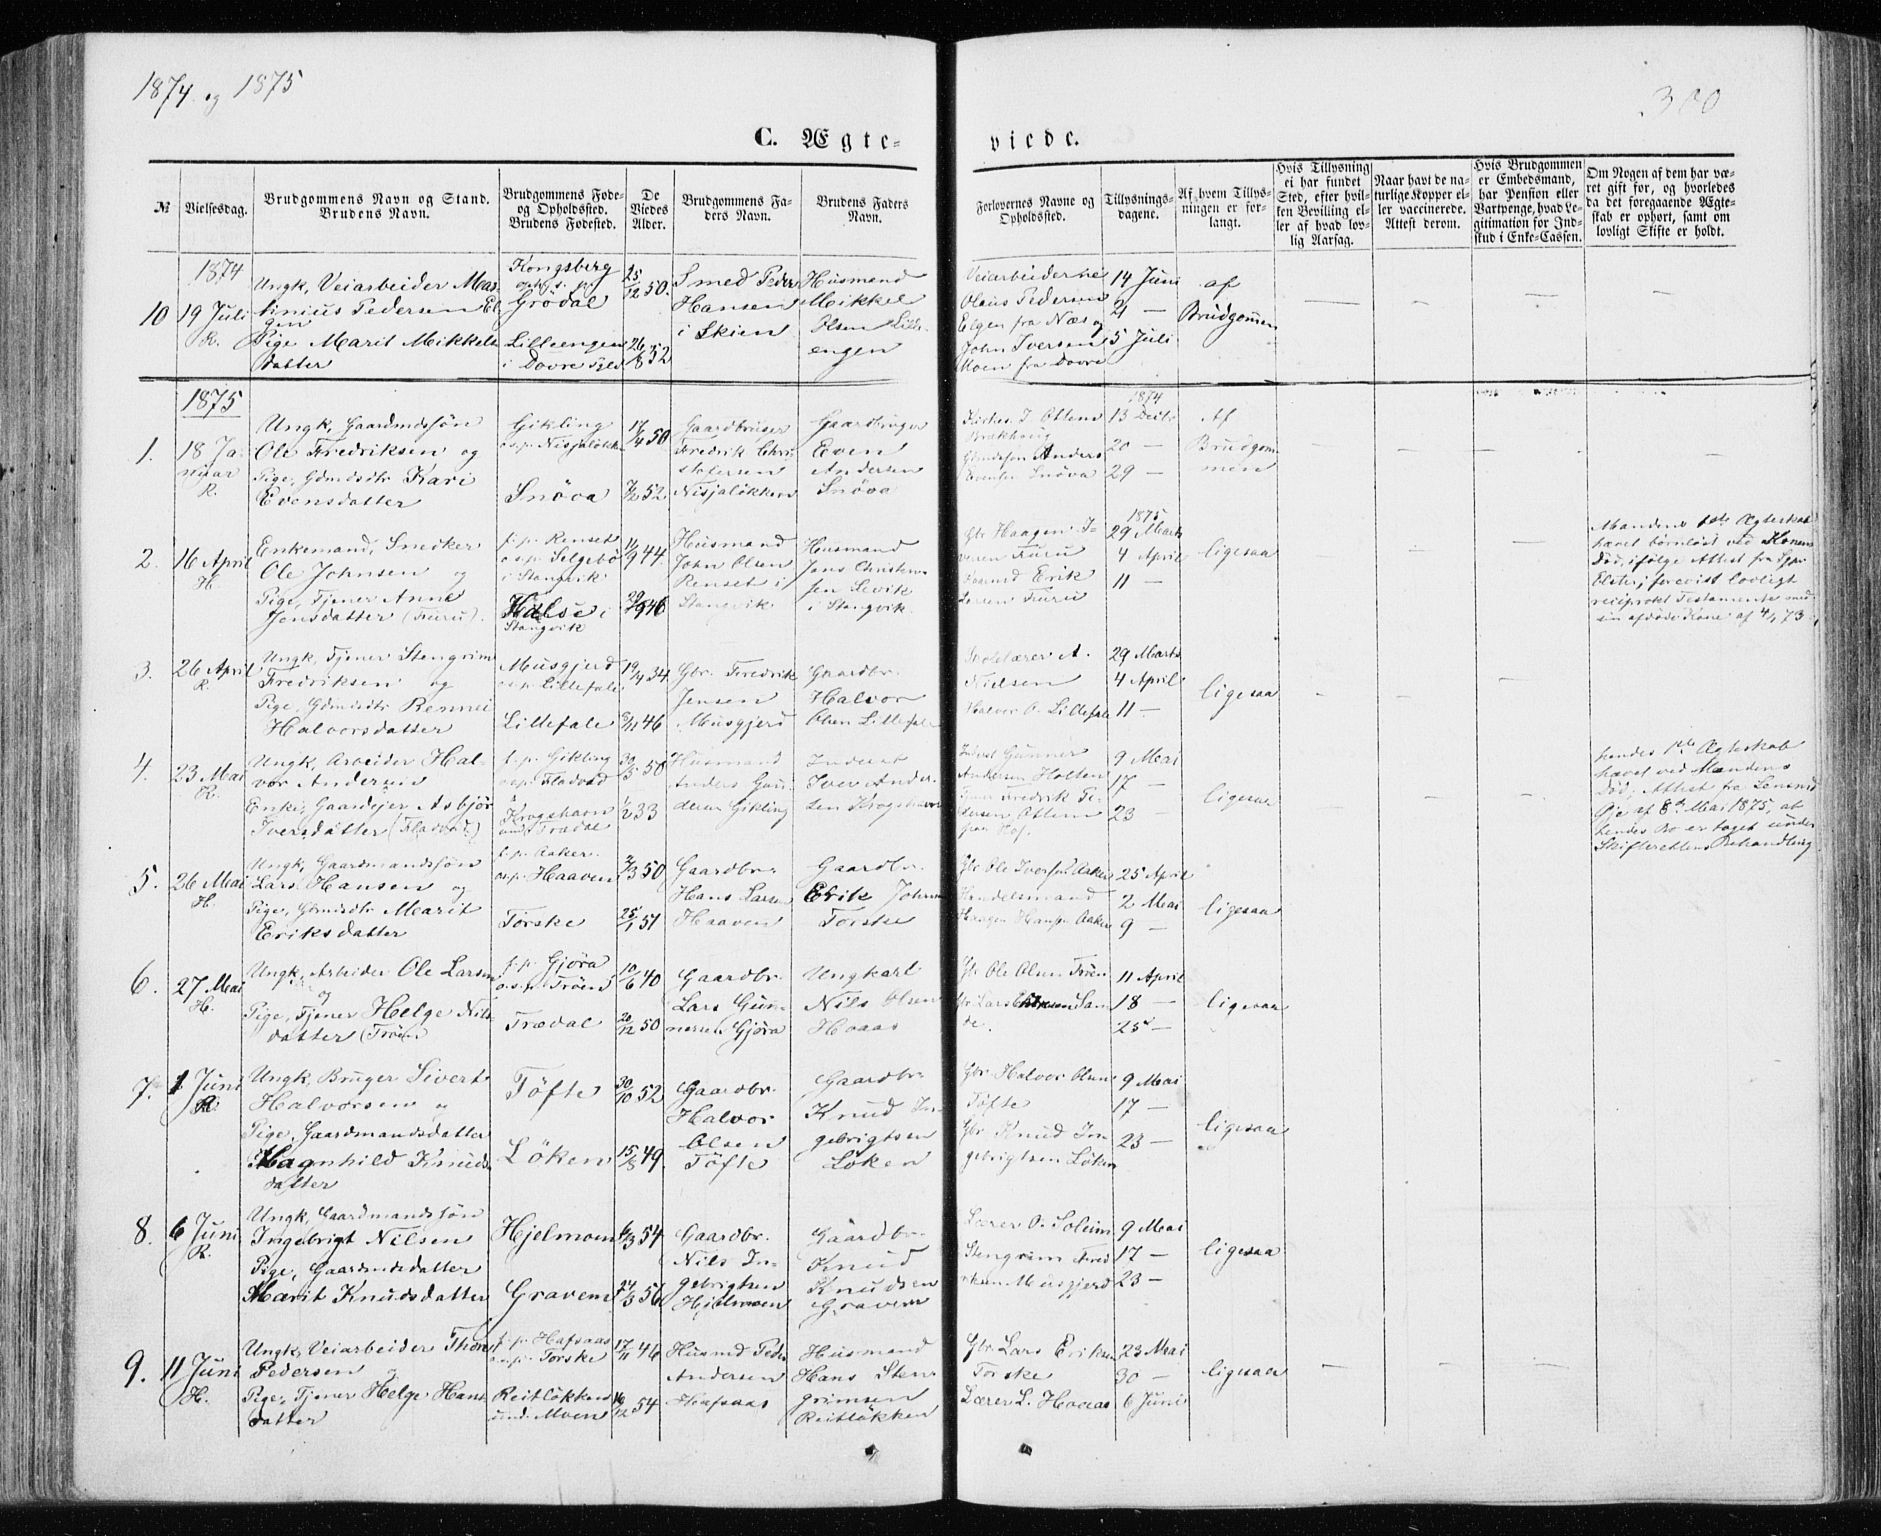 1874 og 1875
300
C. Ægte-
viede.
№
Vielsesdag.
Brudgommens Navn og Stand.
Brudens Navn.
Brudgommens Føde-
og Opholdssted.
Brudens Fødested.
De
Viedes
Alder.
Brudgommens Fa-
ders Navn.
Brudens Faders
Navn.
Forlovernes Navne og
Opholdssted.
Tillysnings-
dagene.
Af hvem Tillys-
ningen er for-
langt.
Hvis Tillysning
ei har fundet
Sted, efter hvil-
ken Bevilling el-
ler af hvad lov-
lig Aarsag.
Naar havt de na-
turlige Kopper el-
ler vaccinerede.
Attest derom.
Hvis Brudgommen
er Embedsmand,
har Pension eller
Vartpenge, hvad Le-
gitimation for Ind-
skud i Enke-Cassen.
Om Nogen af dem har væ-
ret gift før, og hvorledes
da det foregaaende Ægte-
skab er ophørt, samt om
lovligt Skifte er holdt.
1874
10
19 Juli
R.
Ungk, Veiarbeider Mar-
tinius Pedersen El-
gen
Pige Marit Mikkels-
datter
Kongsberg
Grödal
Lilleengen
i Dovre
25/12 50.
26/8 52
Smed Peder
Hansen
i Skien
Husmand
Mikkel
Olsen Lille-
engen
Veiarbeiderne
Olaus Pedersen
Elgen fra Næs og
John Iversen
Moen fra Dovre
14 Juni
21 —
5 Juli
af
Brudgommen
1875
1.
18 Ja-
nuar
R.
Ungk, Gaardmdssön
Ole Fredriksen og
Pige, Gdmdsdtr Kari
Evensdatter
Gikling
o.s.p. Nisjalökken
Snöva
17/4 50
7/2 52
Gaardbruger
Fredrik Chri-
stofersen
Nisjalökken
Gaardbruger
Even
Andersen
Snöva
Kirkes. I Ottem
Brækhaug
Anders
Evensen Snöva
1874
13 Decbr
20 —
29 —
Af
Brudgom-
men
2.
16 April
H.
Enkemand, Snedker
Ole Johnsen og
Pige, Tjener Anne
Jonsdatter (Furu).
f.p. Renset
o.s.p. Selgebö
i Stangvik
Halse i
Stangvik
11/9 44.
29/9 46
Husmand
John Olsen
Renset i
Stangvik
Husmand
Jons Christen-
sen Sevik
i Stangvik
Gbr Haagen I-
versen Furu
Husmd Erik
Larsen Furu
1875
29 Marts
4 April
11 —
ligesaa
Mandens 1ste Ægteskab
hævet börnlöst ved Konens
Död, ifölge Attest fra Spr.
Elster; forevist lovligt
reciprokt Testamente med
sin afdöde Kone af 4/1 73.
3.
26 April
R.
Ungk, Tjener Stengrim
Fredriksen og
Pige, Gdmdsdtr Rennei
Halvorsdatter
Musgjerd
o.s.p. Lillefale
Lillefale
19/4 34
3/11 46
Gbr. Fredrik
Jensen
Musgjerd
Gaardbr.
Halvor
Olsen Lillefale
Skolelærer A.
Nielsen
Halvor O. Lillefale
29 Marts
4 April
11 —
ligesaa
4.
23 Mai
R.
Ungk, Arbeider Hal-
vor Andersen
Enke, Gaardejer Asbjör
Iversdatter (Fladvad)
f.p. Gikling
o.s.p. Fladvad
Krogshavn
und. Trædal
30/5 50
1/2 33
Husmand
Anders Gun-
dersen Gikling
Inderst
Iver Ander-
sen Krogshavn
Inderst Gunner
Andersen Holten
Tjener Fredrik Pe-
dersen Ottem
fra Hof.
9 Mai
17 —
23 —
ligesaa
hendes 1ste Ægteskab
hævet ved Mandens
Död; Attest fra Lensmd
Gje af 8de Mai 1875, at
hendes Bo er taget under
Skifterettens Behandling
5.
26 Mai
H.
Ungk, Gaardmandssön
Lars Hansen og
Pige, Gdmdsdtr Marit
Eriksdatter
f.p. Aaker
o.s.p. Haaven
Torske
2/3 50
25/1 51
Gaardbr.
Hans Larsen
Haaven
Gaardbr.
Erik Johnsen
Torske
Gbr Ole Iversen Aaker
Handelsmand
Haagen Hansen Aaker
25 April
2 Mai
9 —
ligesaa
6.
27 Mai
H.
Ungk, Arbeider Ole Larsen
og
Pige, Tjener Helge Nils-
datter (Tröen)
f.p. Gjöra
o.s.p. Tröen
Trædal
10/6 40
20/12 50
Gaardbr.
Lars Gun-
nersen Gjöra
Ungkarl
Nils Olsen
Hvaas
Gbr Ole Olsen Tröen
Gbr Lars San-
de.
11 April
18 —
25 —
ligesaa
7.
1 Juni
R.
Ungk, Bruger Sivert
Halvorsen og
Pige, Gaardmandsdatter
Ragnhild Knuds-
datter
Töfte
Löken
30/10 52
15/8 49.
Gaardbr.
Halvor
Olsen
Töfte
Gaardbr.
Knud In-
gebrigtsen
Löken
Gbr. Halvor Olsen
Töfte
Gbr. Knud In-
gebrigtsen Löken
9 Mai
17 —
23 —
ligesaa
8.
6 Juni
R.
Ungk, Gaardmandssön
Ingebrigt Nilsen
Pige, Gaardmdsdatter
Marit Knudsdatter
Hjelmoen
Gravem
6/3 54
27/3 56
Gaardbr.
Nils In-
gebrigtsen
Hjelmoen
Gaardbr.
Knud
Knudsen
Gravem
Lærer O. Soleim
Stengrim Fred-
riksen Musgjerd
9 Mai
17 —
23 —
ligesaa
9.
11 Juni
H.
Ungk, Veiarbeider Thore
Pedersen og
Pige, Tjener Helge Hans-
datter
f.p. Hafsaas
o.s.p. Torske
Reitlökken
und. Moen
17/11 46
16/12 54
Husmd Peder
Andersen
Hafsaas
Husmand
Hans Sten-
grimsen
Reitlökken
Gbr Lars Eriksen
Torske
Lærer L. Hovaas
23 Mai
30 —
6 Juni
ligesaa